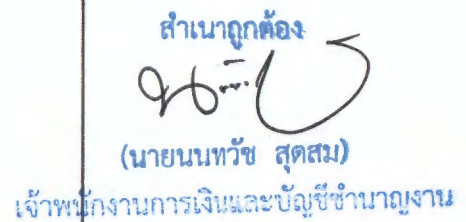 สำเนาถูกต้อง
(นายนนทวัช สุตสม)
เจ้าพนักงานการเงินและบัญชีชำนาญงาน